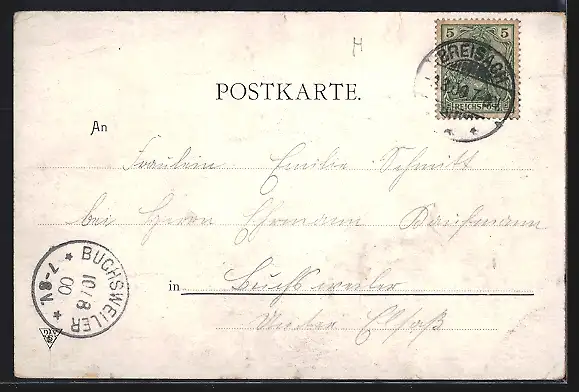 M
5 5
BREISACH
REICHSPOST
POSTKARTE.
An
Fräulein Emilie Schmitt
bei Herrn Ehrmann Kaufmann
in Buchsweiler
Unter Elsaß
BUCHSWEILER
10/8
00
7-8V.